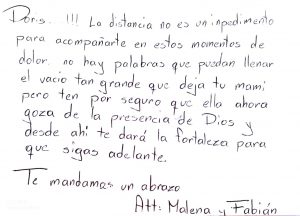 Doris. !!! La distancia no es un inpedimento
para acompañarte en estos momentos de
dolor. no hay palabras que puedan llenar
el vacio tan grande que deja tu mami
pero ten por seguro que ella ahora
goza de la presencia de Dios y
desde ahí te dará la fortaleza para
que sigas adelante.
Te mandamos un abrazo
Att: Malena y Fabián